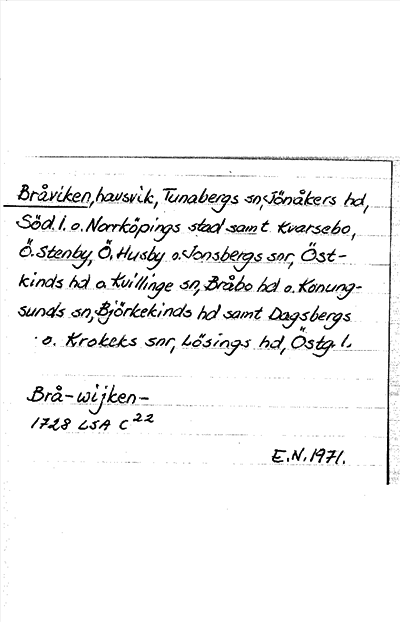 Bråviken, havsvik, Tunabergs sn, Jönåkers hd,
Söd. l. o. Norrköpings stad samt Kvarsebo,
Ö. Stenby, Ö. Husby o. Jonsbergs snr, Öst-
kinds hd o. Kvillinge sn, Bråbo hd o. Konung-
sunds sn, Björkekinds hd samt Dagsbergs
o. Krokeks snr, Lösings hd, Östg. l.
Brå-wijken-
1728 LSA C 22
E.N. 1971.